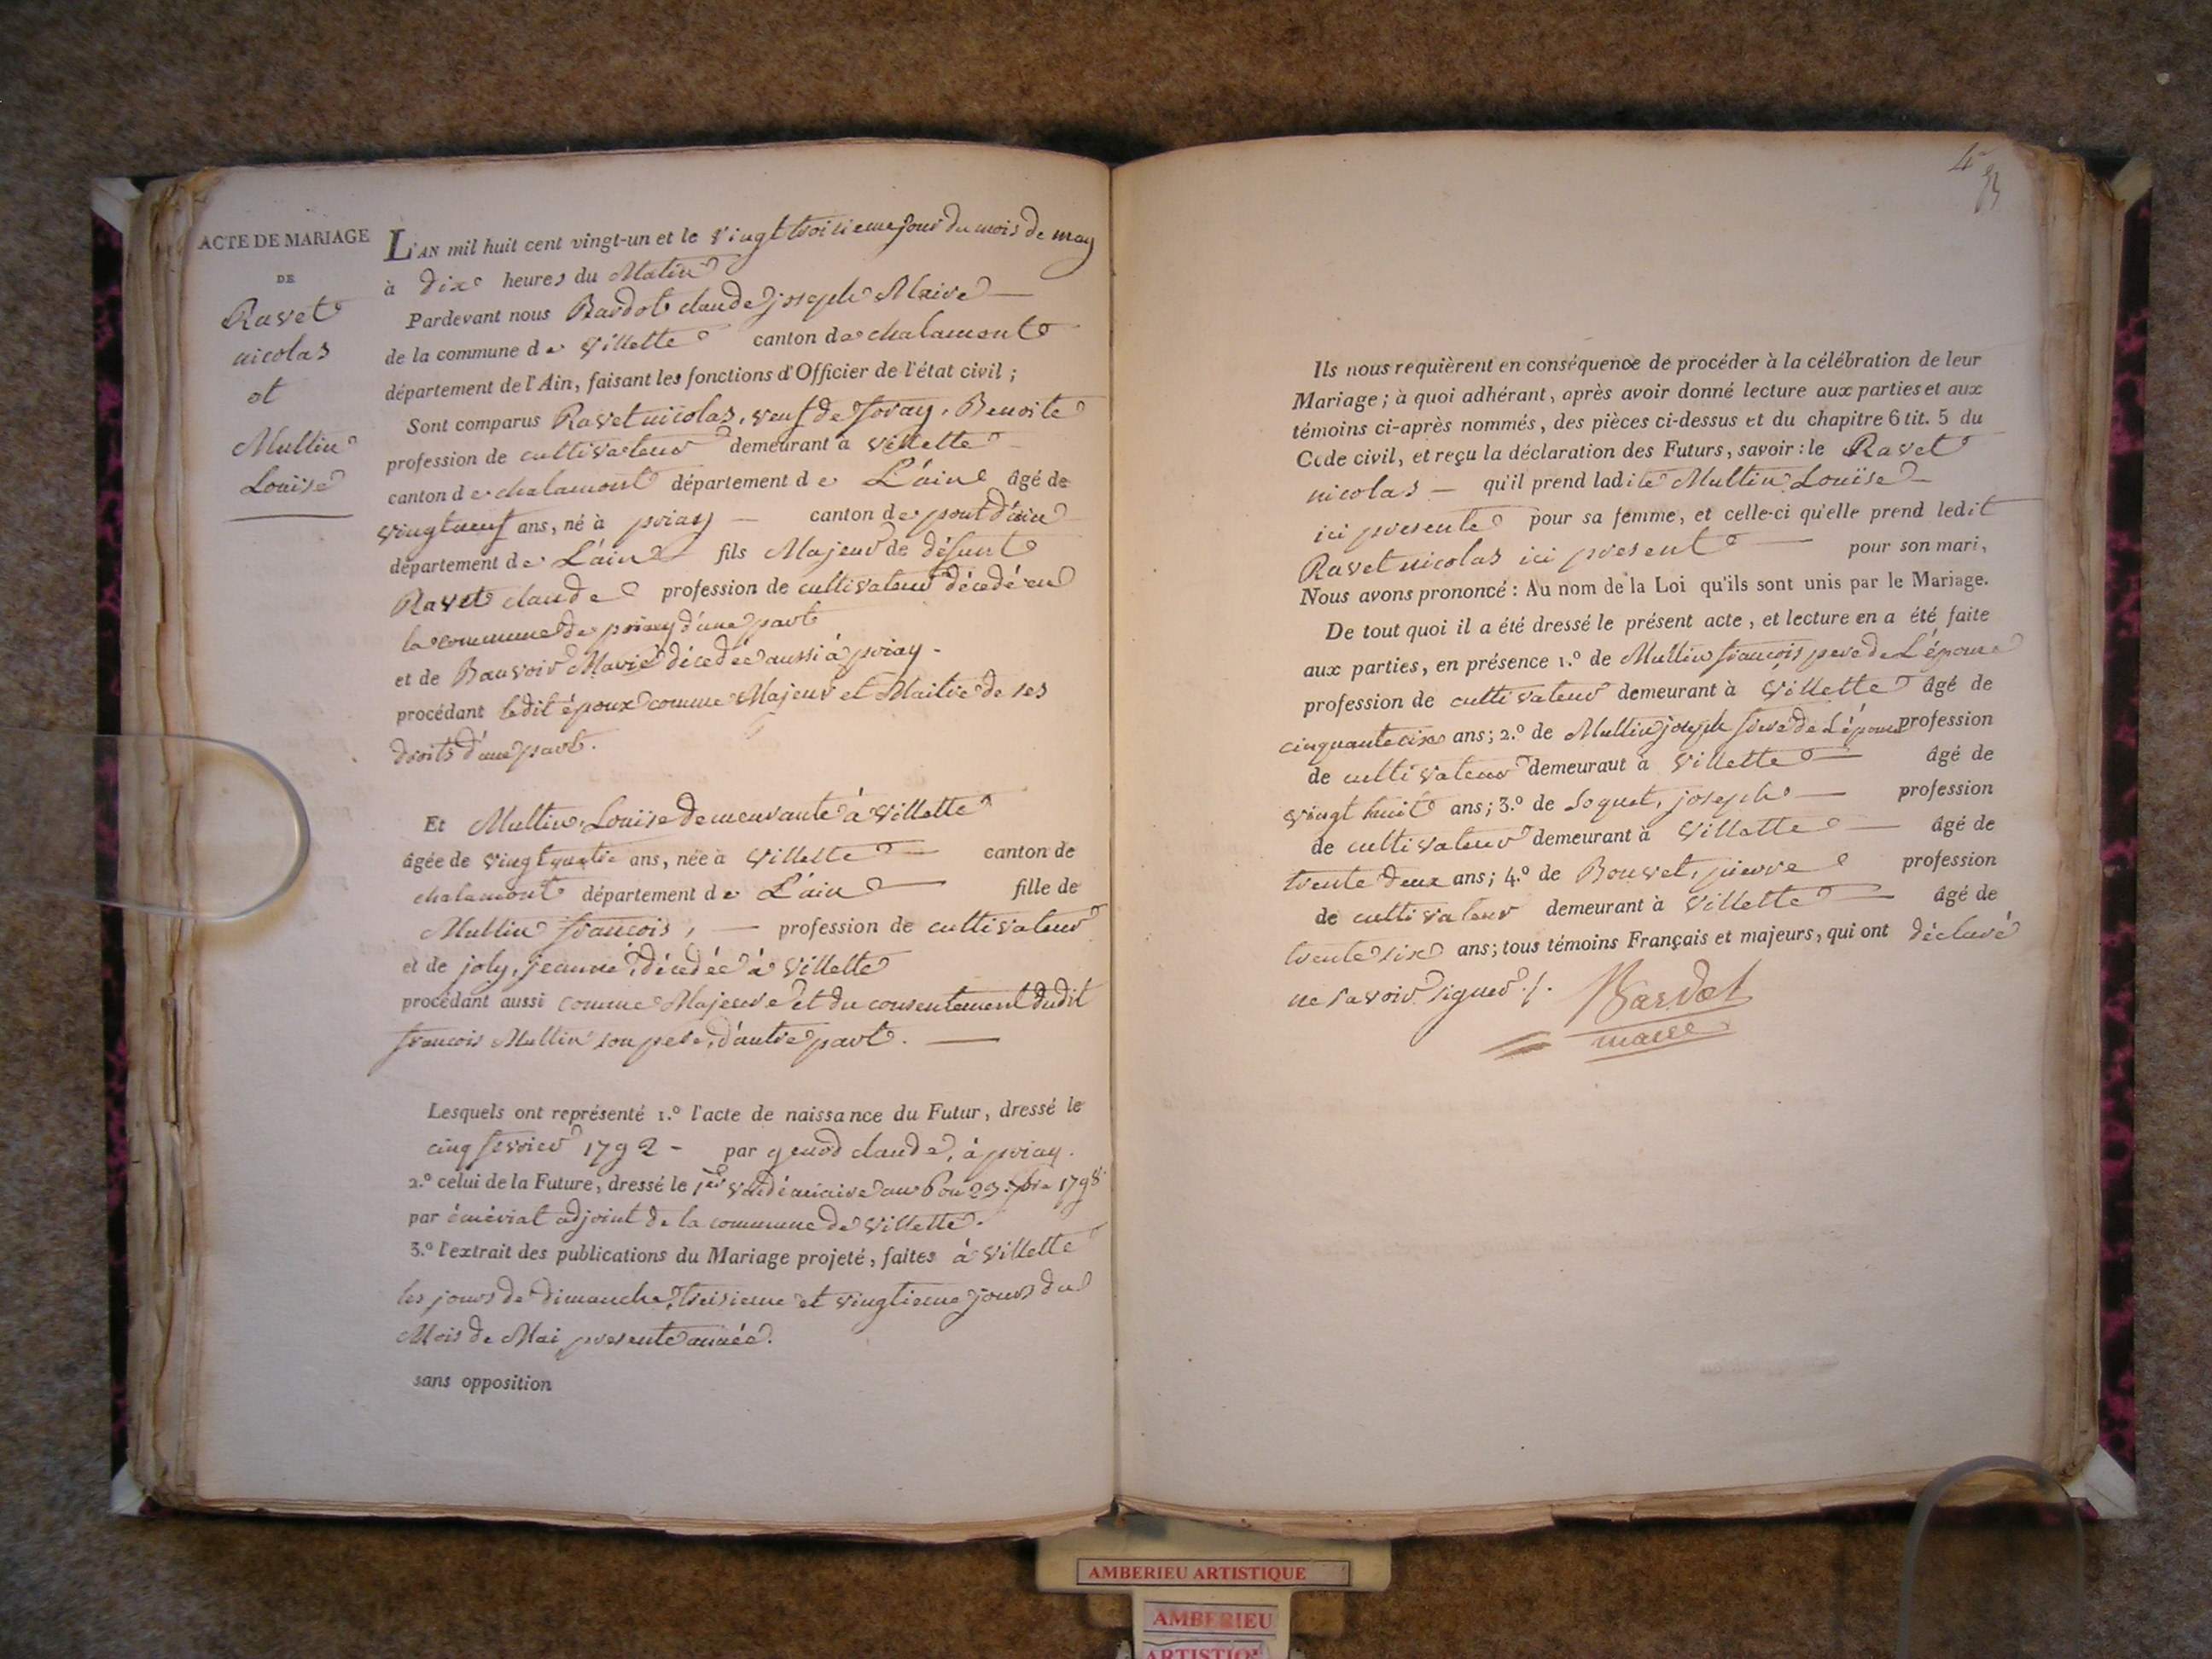 ACTE DE MARIAGE
DE
Ravet
nicolas
et
Mullin
Louise
L'AN mil huit cent vingt-un et le vingt troisieme jour du mois de may
à dix heures du Matin
Pardevant nous Bardot claude joseph Maire
de la commune de villette canton de chalamont
département de l'Ain, faisant les fonctions d'Officier de l'état civil ;
Sont comparus Ravet nicolas, veuf de Benoite
profession de cultivateur demeurant à villette
canton de chalamont département de L'ain âgé de
vingt neuf ans, né à priay canton de pont d'ain
département de L'ain fils Majeur de défunt
Ravet claude profession de cultivateur décédé en
la commune de priay d'une part
et de Bauvoir Marie décedée aussi à priay
procédant ledit époux comme Majeur et Maitre de ses
droits d'une part.
Et Mullin, Louise demeurante à villette
âgée de vingt quatre ans, née à villette canton de
chalamont département de L'ain fille de
Mullin francois, profession de cultivateur
et de joly, jeanne, décedée à villette
procédant aussi comme Majeure et du consentement dudit
francois Mullin son pere, d'autre part.
Lesquels ont représenté 1.º l'acte de naissance du Futur, dressé le
cinq fevrier 1792 - par genod claude, à priay.
2.º celui de la Future, dressé le 1er vendémiaire an 6 ou 23 7bre 1798
par adjoint de la commune de villette.
3.º l'extrait des publications du Mariage projeté, faites à villette
les jours de dimanche, treisieme et vingtieme jours du
Mois de Mai presente année.
sans opposition
4
Ils nous requièrent en conséquence de procéder à la célébration de leur
Mariage ; à quoi adhérant, après avoir donné lecture aux parties et aux
témoins ci-après nommés, des pièces ci-dessus et du chapitre 6 tit. 5 du
Code civil, et reçu la déclaration des Futurs, savoir : le Ravet
nicolas - qu'il prend ladite Mullin Louise
ici presente pour sa femme, et celle-ci qu'elle prend ledit
Ravet nicolas ici present pour son mari,
Nous avons prononcé : Au nom de la Loi qu'ils sont unis par le Mariage.
De tout quoi il a été dressé le présent acte, et lecture en a été faite
aux parties, en présence 1.º de Mullin francois pere de L'épouse
profession de cultivateur demeurant à villette âgé de
cinquante six ans ; 2.º de Mullin joseph frere de L'épouse profession
de cultivateur demeurant à villette âgé de
vingt huit ans ; 3.º de Loquet, joseph profession
de cultivateur demeurant à villette âgé de
trente deux ans ; 4.º de Bouvet, pierre profession
de cultivateur demeurant à villette âgé de
trente six ans ; tous témoins Français et majeurs, qui ont déclaré
ne savoir signer ./.
Bardot
maire
AMBERIEU ARTISTIQUE
AMBERIEU